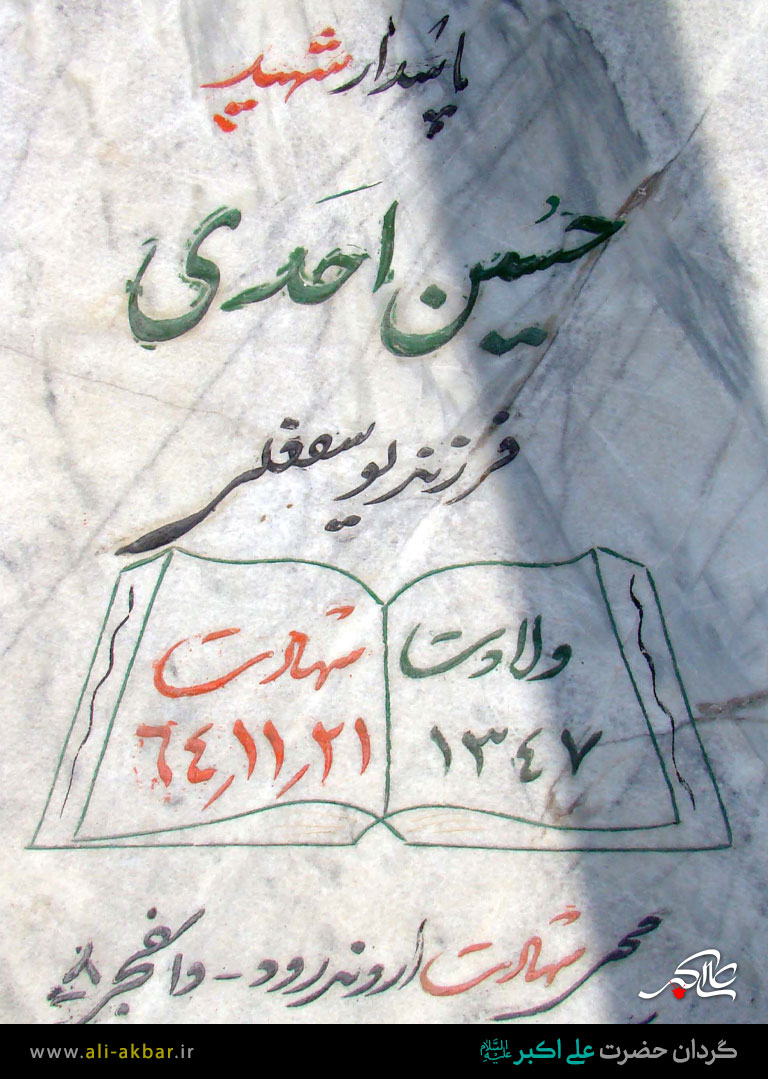 پاسدار شهید
حسین احمدی
فرزند یوسفعلی
ولادت
۱۳٤۷
شهادت
٦٤٫۱۱٫۲۱
محل شهادت اروندرود - والفجر ۸
علی اکبر
گردان حضرت علی اکبر علیه السلام
www.ali-akbar.ir